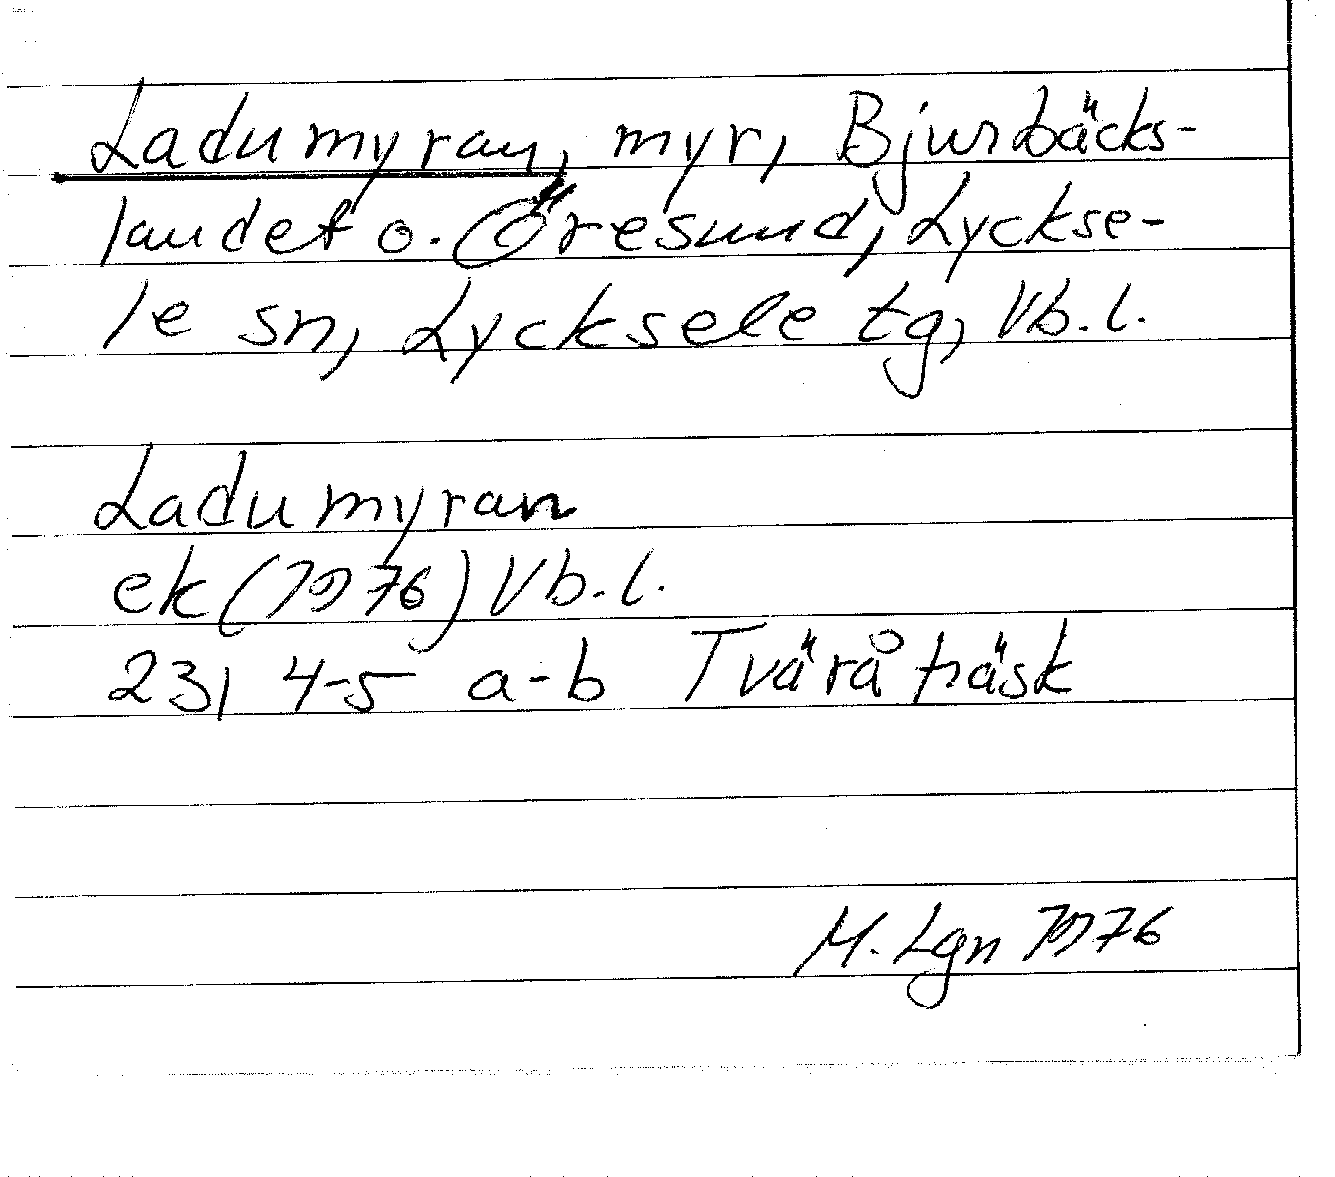 Ladumyran, myr, Bjurbäcks-
landet o. Öresund, Lycksе-
le sn, Lycksele tg, Vb.l.
Ladumyran
ek (1976) Vb.l.
23I 4-5 a-b Tväråträsk
M. Lgn 1976